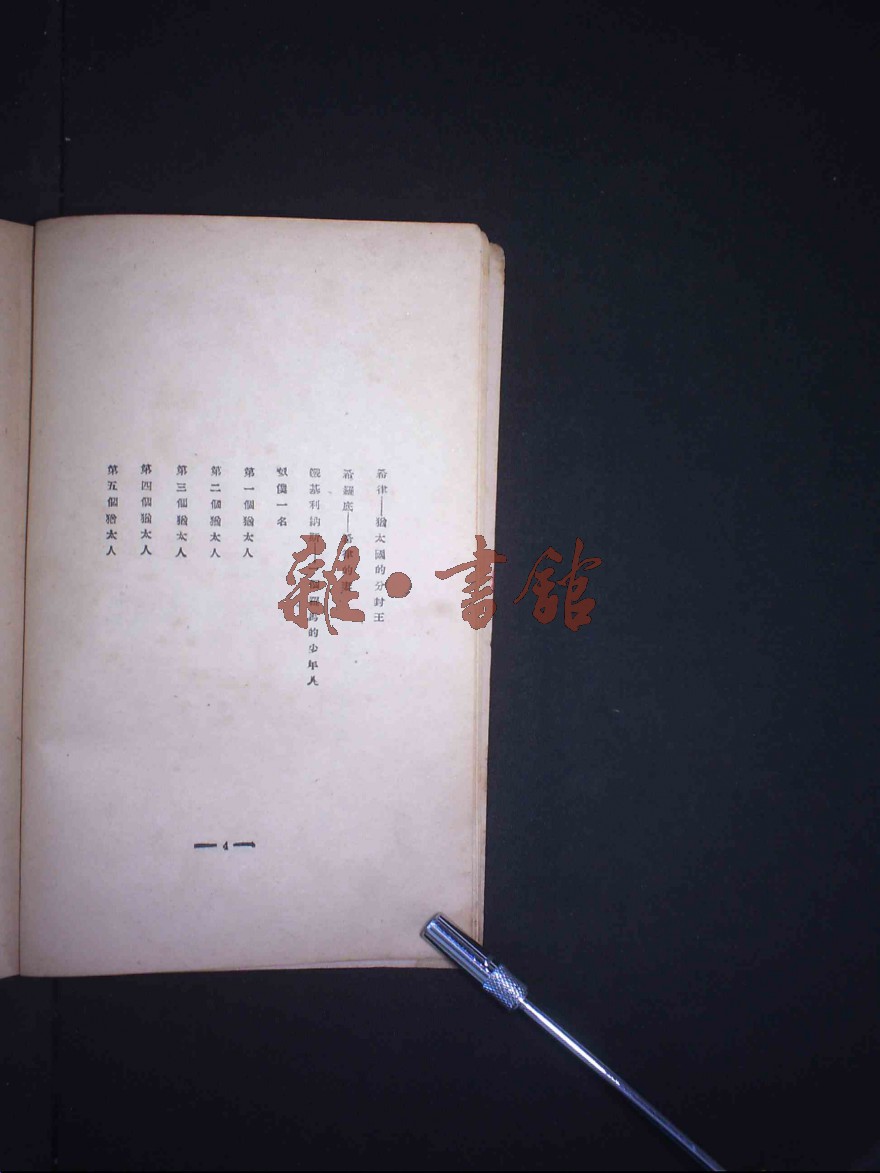 希律——猶太國的分封王
希羅底——希律的妻
基利納 個羅馬的少年人
奴僕一名
第一個猶太人
第二個猶太人
第三個猶太人
第四個猶太人
第五個猶太人
4
雜·書館